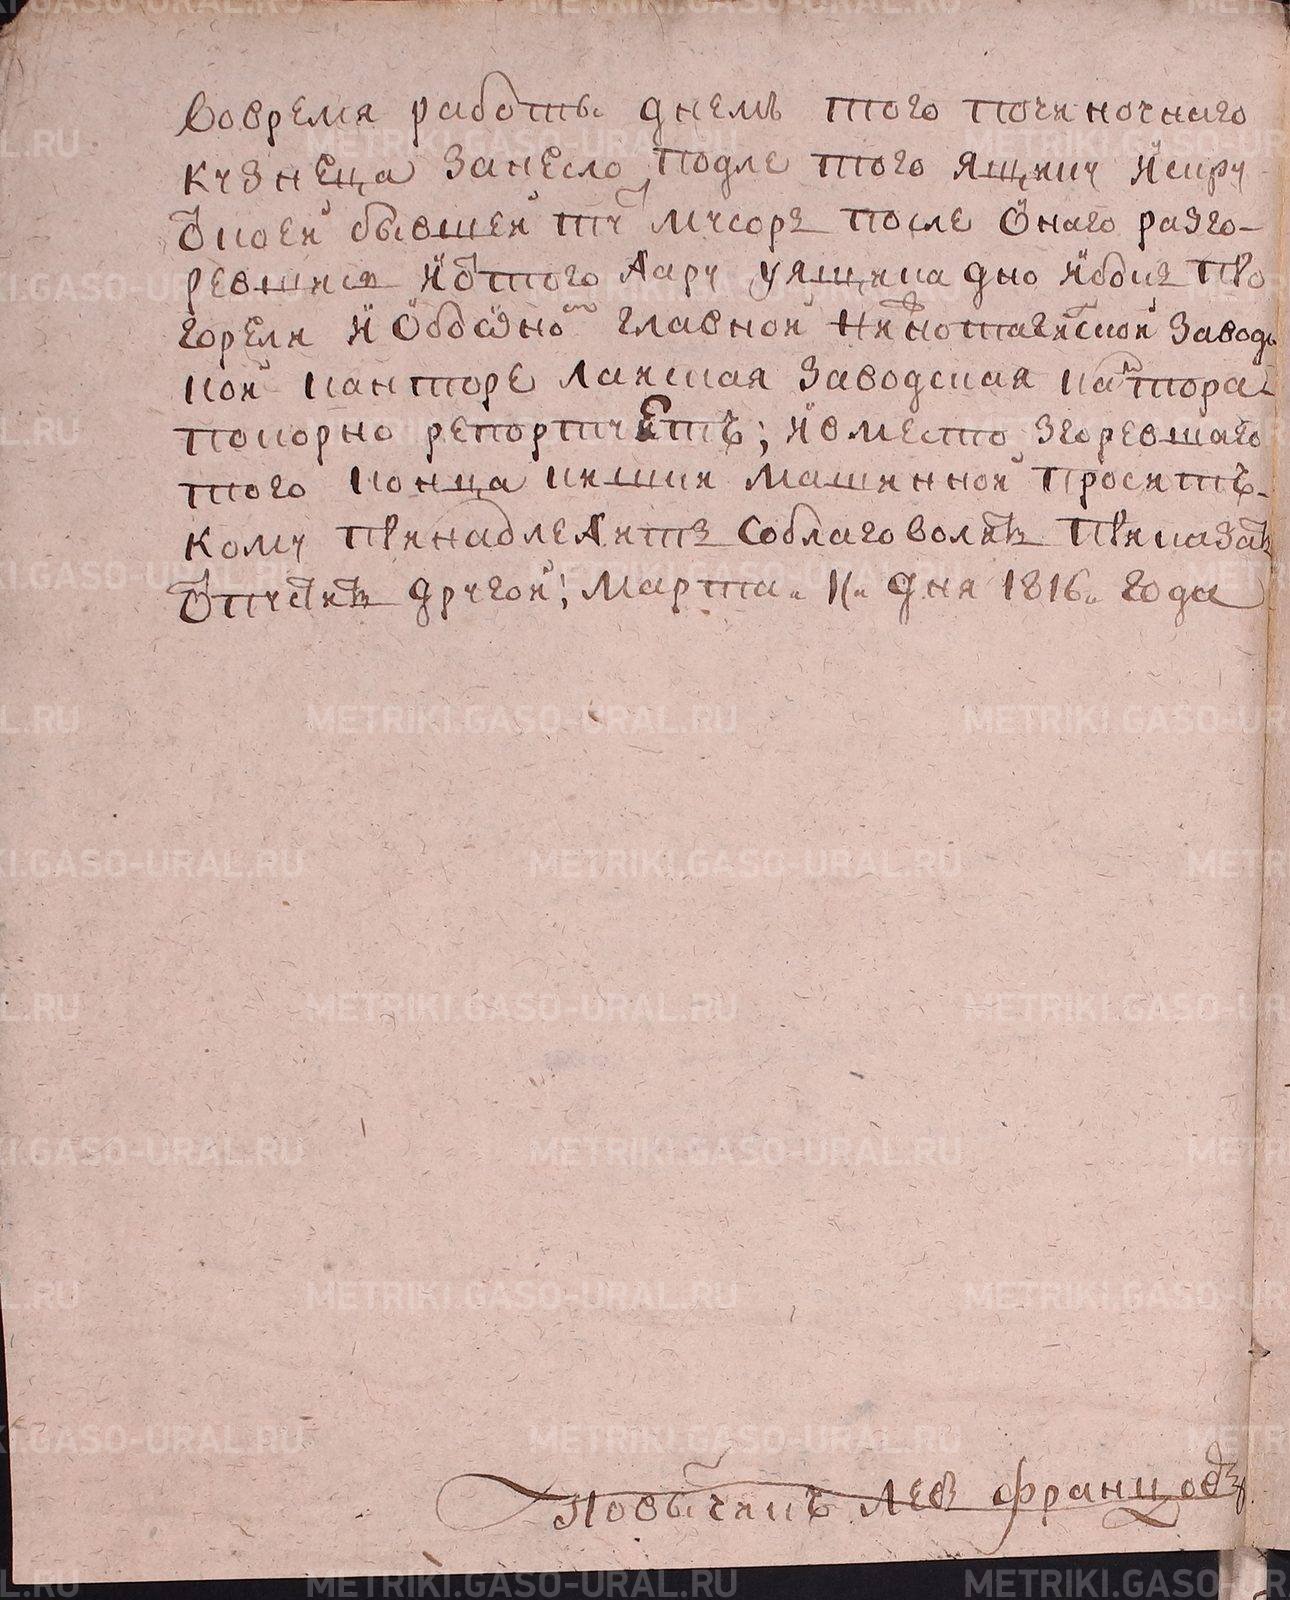 вовремя работы днемъ того починочнаго
кузнеца занесло подле того ящику искру
отъ коей бывшей тут мусоръ после онаго разго-
ревшися и отъ того жару уящика дно ибокъ про
горели и Обо оном главной Нижнотагилской Заводс
кой канторе лайская заводская кантора
покорно репортуетъ; ивместо згоревшаго
того конца кишки машинной проситъ
кому принадлежитъ соблаговолить приказать
отпустить другой! Марта 11 дня 1816 года
повытчикъ Лев францовъ
METRIKI.GASO-URAL.RU